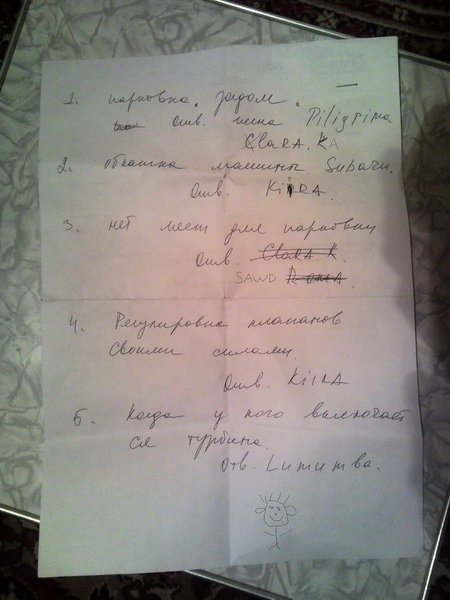 1. парковка. задом.
отв. жена Piligrima
ClaRA. KA
2. обкатка машины Subaru.
Отв. KiiRA.
3. нет мест для парковки
Отв. ClaRA K.
SAWD
4. Регулировка клапанов
своими силами.
Отв. KiiRA
5. Когда у кого включает
ся турбина.
Отв.